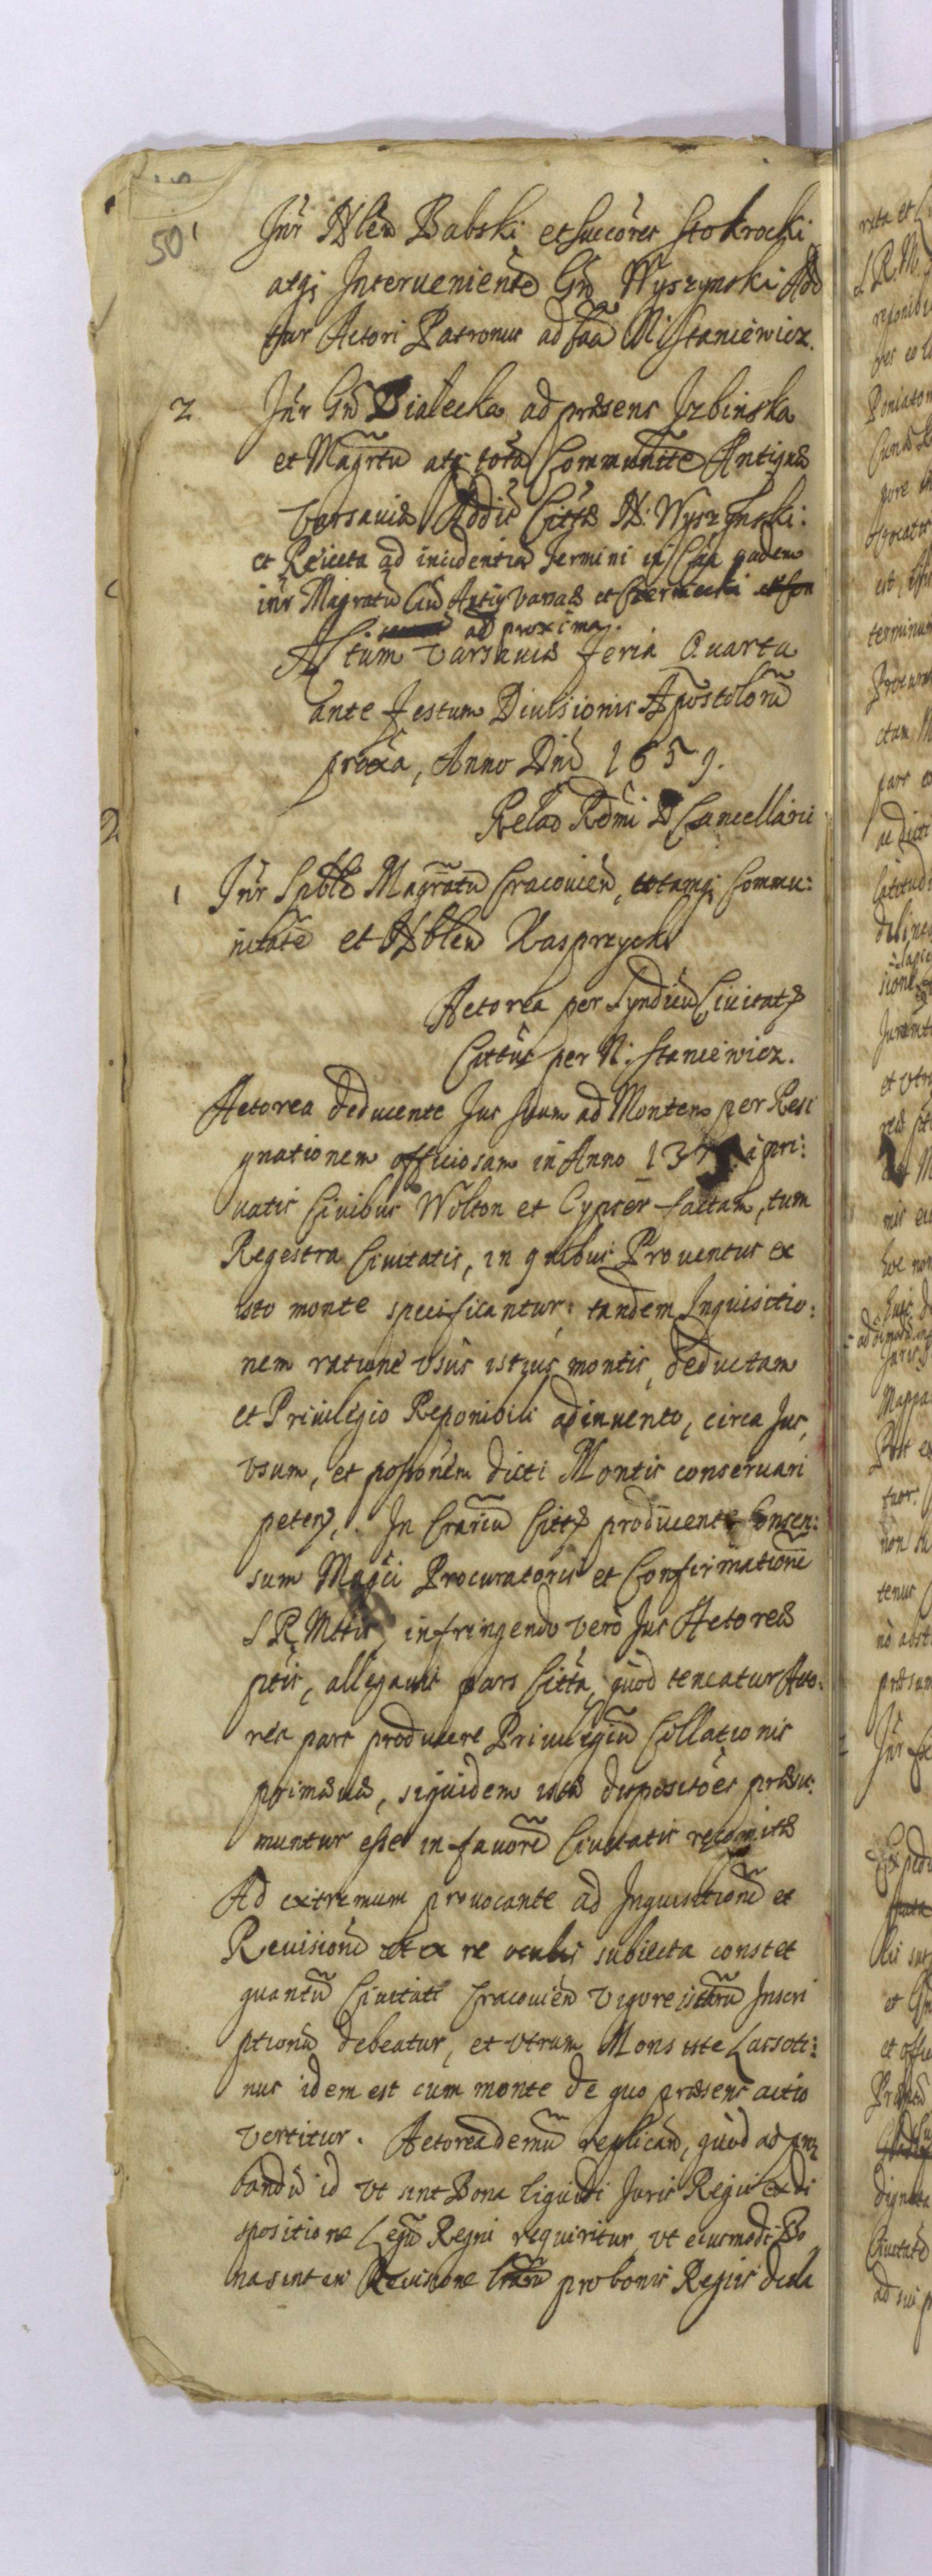 50
1 Inr Nblem Babski et succores Stokrocki
atq; Interueniente Gn Wyszynski Add
tur Actori Patronus ad faa N: Staniewicz.
2 Inr Gn Bialecka ad præsens Jzbinska
et Magrtu atq tota Communite Antiquæ
Varsauiæ Addit Cittæ N: Wyszynski:
et Reiecta ad incidentiã Termini in Caa eadem
inr Magratu Ciu Antiq Varsaæ et Czerniecki
ad proxima.
Actum Varsauiæ Feria Quarta
ante Festum Diuisionis Apostolorũ
proxa, Anno Dni 1659.
Relao Rdmi D Cancellarii
1 Inr Spble Magratu Cracouien, totamq; Commu:
nitate et Nblem Kasprzycki
Actorea per Syndicu Ciuitatis
Cittus per N: Staniewicz.
Actorea deducente Jus suum ad Montem per Resi
gnationem officiosam in Anno 13 a pri:
uatis Ciuibus Wolton et Cypser factam, tum
Regestra Ciuitatis, in quibus Prouentus ex
isto monte specificantur, tandem Inquisitio:
nem ratione vsus istius montis, deductam
et Priuilegio Reponibili adinuento, circa Jus,
vsum, et possonem dicti Montis conseruari
petens,. In Crariu Cittæ producente Consen:
sum Magci Procuratoris et Confirmatione
S R Mttis, infringendo vero Jus Actoreæ
ptis, allegauit pars Citta, quod teneatur Acto:
rea pars producere Priuilegiu Collationis
primæuæ, siquidem istæ dispositões præsu:
muntur esse in fauore Ciuitatis recognitæ
Ad extremum prouocante ad Inquisitione et
Reuisione ut ex re oculis subiecta constet
quantu Ciuitati Cracouien vigore istaru Inscri
ptionu debeatur, et vtrum Mons iste Lassoti:
nus idem est cum monte de quo præsens actio
vertitur. Actorea demu replican, quod ad pro
bandu id vt sint Bona liquidi Juris Regii ex di
spositione Legu Regni requiritur, vt eiusmodi Bo
na sint in Reuisione pro bonis Regiis decla